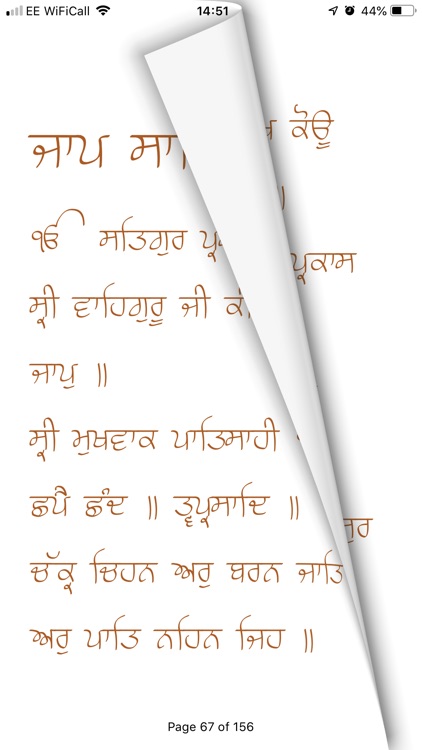 EE WiFiCall 14:51 44%
ਜਾਪ
ਕੋਊ
ੴ ਸਤਿਗੁਰ
ਪ੍ਰਕਾਸ
ਸ੍ਰੀ ਵਾਹਿਗੁਰੂ ਜੀ
ਜਾਪੁ ॥
ਸ੍ਰੀ ਮੁਖਵਾਕ ਪਾਤਿਸਾਹੀ
ਛਪੈ ਛੰਦ ॥ ਤ੍ਵਪ੍ਰਸਾਦਿ ॥
ਚੱਕ੍ਰ ਚਿਹਨ ਅਰੁ ਬਰਨ ਜਾਤਿ
ਅਰੁ ਪਾਤਿ ਨਹਿਨ ਜਿਹ ॥
Page 67 of 156